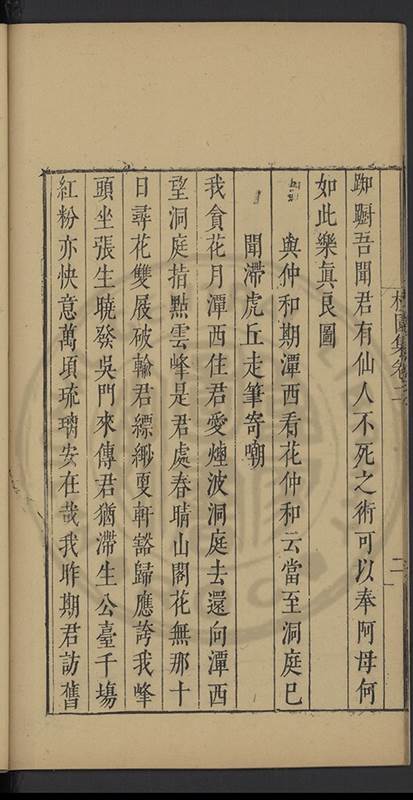 踟躕吾聞君有仙人不死之術可以奉阿母何
如此樂眞良圖
與仲和期潭西看花仲和云當至洞庭已
聞滯虎丘走筆寄嘲
我貪花月潭西住君愛煙波洞庭去還向潭西
望洞庭指點雲峰是君處春晴山閣花無那十
日尋花雙屐破輸君縹緲更軒豁歸應誇我峰
頭坐張生曉發吳門來傳君猶滯生公臺千塲
紅粉亦快意萬頃琉璃安在哉我昨期君訪舊
二